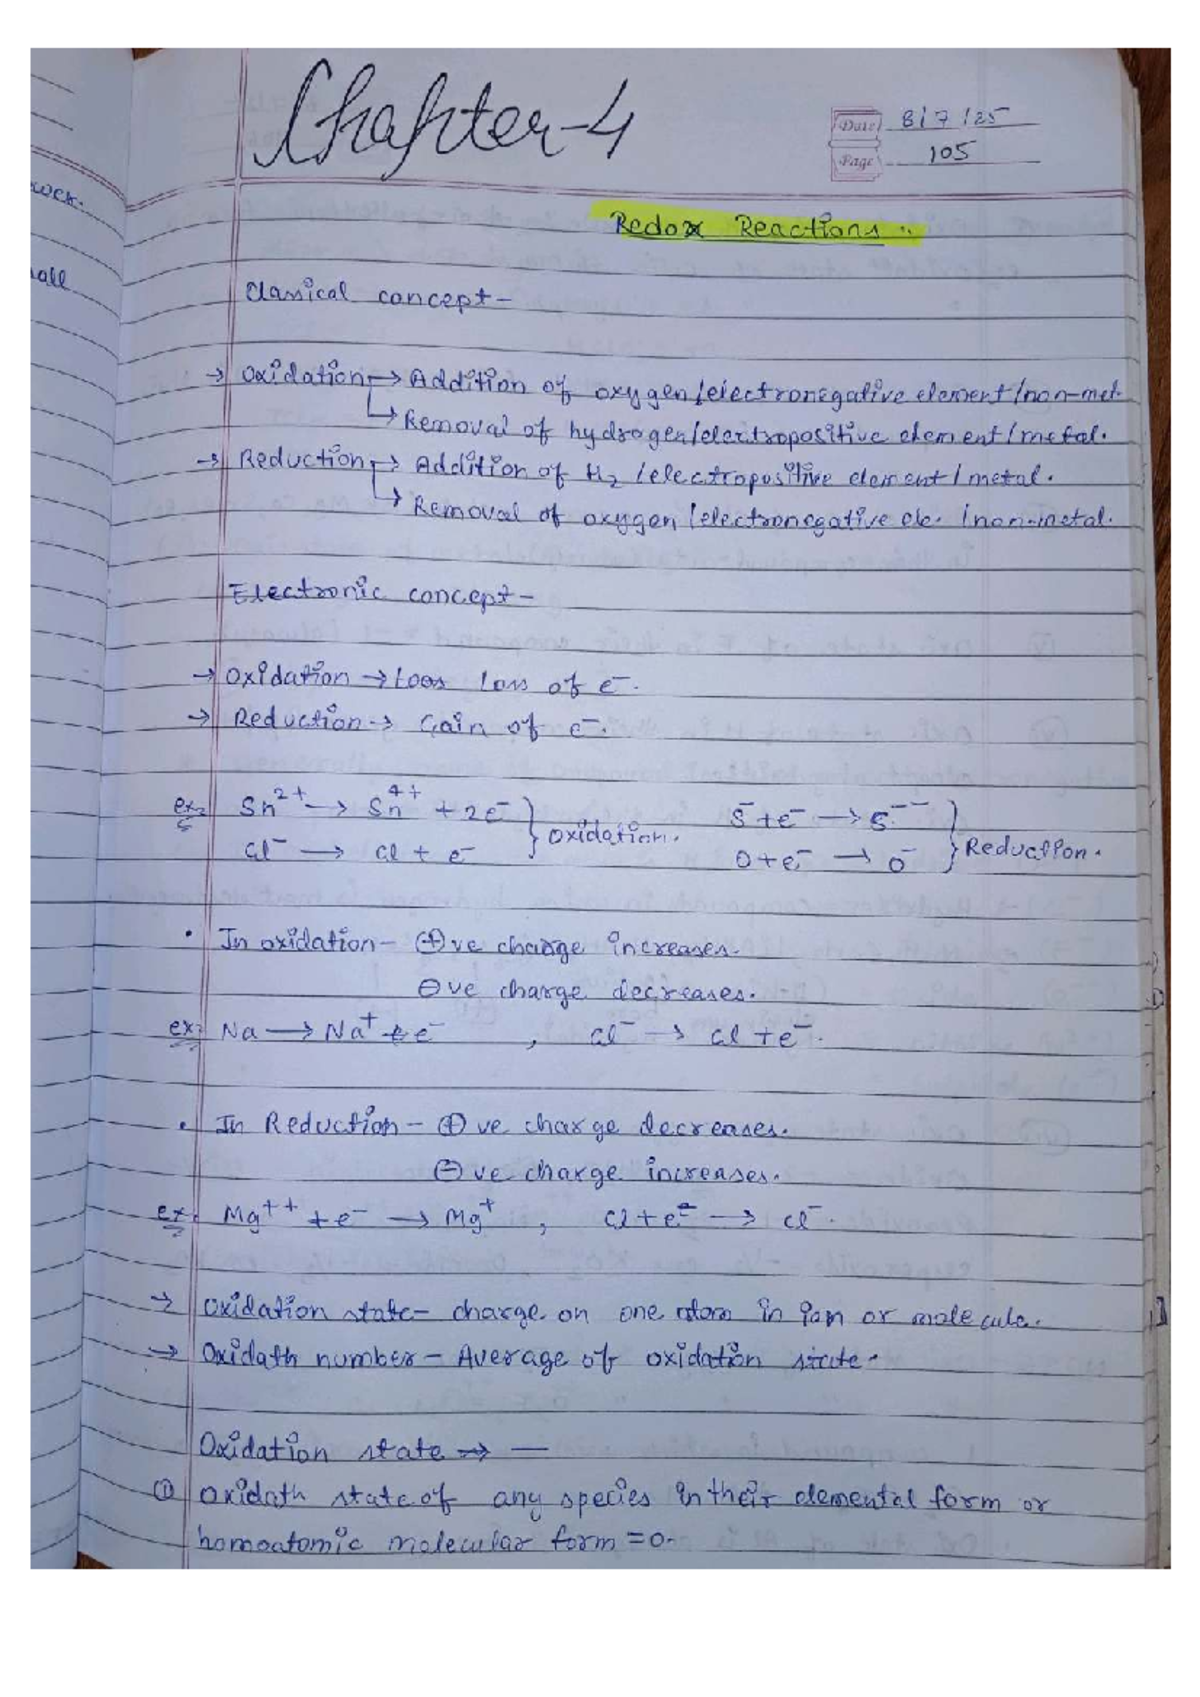 Chapter-4
Date 8/7/25
Page 105
Redox Reactions :.
Classical concept-
→ Oxidation → Addition of oxygen/electronegative element/non-met.
↳ Removal of hydrogen/electropositive element/metal.
→ Reduction → Addition of H₂ /electropositive element/metal.
↳ Removal of oxygen/electronegative ele. /non-metal.
Electronic concept-
→ Oxidation → Loos Loss of e⁻.
→ Reduction → Gain of e⁻.
ex:- Sn²⁺ → Sn⁴⁺ + 2e⁻ } Oxidation. S⁻ + e⁻ → S⁻⁻ } Reduction.
Cl⁻ → Cl + e⁻ O + e⁻ → O⁻
• In oxidation- ⊕ve charge increases.
⊖ve charge decreases.
ex:- Na → Na⁺ + e⁻ , Cl⁻ → Cl + e⁻.
• In Reduction- ⊕ve charge decreases.
⊖ve charge increases.
ex:- Mg⁺⁺ + e⁻ → Mg⁺ , Cl + e⁻ → Cl⁻.
→ Oxidation state- charge on one atom in ion or molecule.
→ Oxidath number- Average of oxidation state.
Oxidation state → —
① Oxidath state of any species in their elemental form or
homoatomic molecular form = 0.
wer.
all